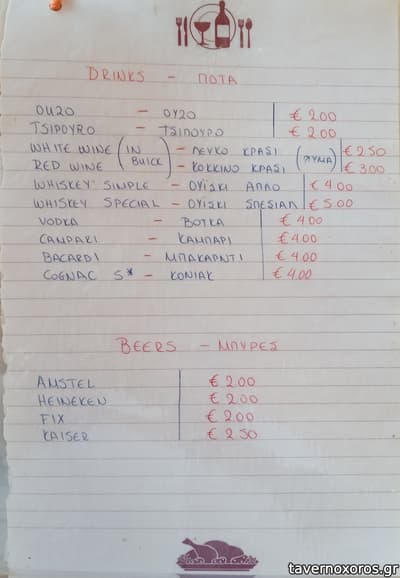 DRINKS - ΠΟΤΑ
OUZO - ΟΥΖΟ € 2.00
TSIPOURO - ΤΣΙΠΟΥΡΟ € 2.00
WHITE WINE (IN - ΛΕΥΚΟ ΚΡΑΣΙ (ΧΥΜΑ) € 2.50
RED WINE BULCK) - ΚΟΚΚΙΝΟ ΚΡΑΣΙ € 3.00
WHISKEY SIMPLE - ΟΥΪΣΚΙ ΑΠΛΟ € 4.00
WHISKEY SPECIAL - ΟΥΪΣΚΙ ΣΠΕΣΙΑΛ € 5.00
VODKA - ΒΟΤΚΑ € 4.00
CAMPARI - ΚΑΜΠΑΡΙ € 4.00
BACARDI - ΜΠΑΚΑΡΝΤΙ € 4.00
COGNAC 5* - ΚΟΝΙΑΚ € 4.00
BEERS - ΜΠΥΡΕΣ
AMSTEL € 2.00
HEINEKEN € 2.00
FIX € 2.00
KAISER € 2.50
tavernoxoros.gr